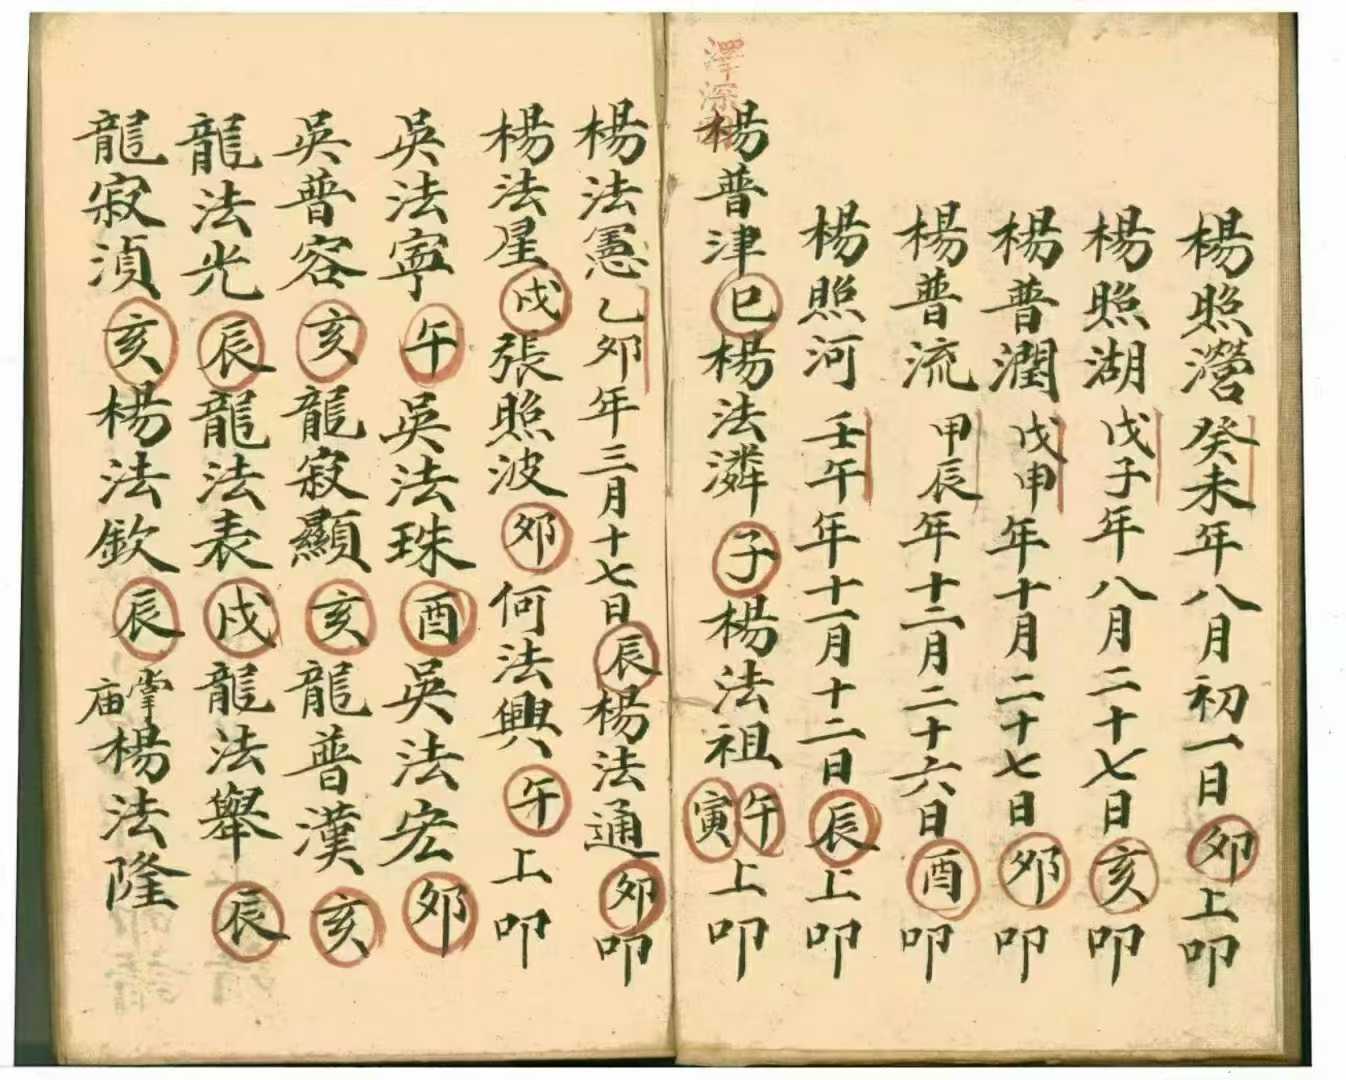 楊照濙癸未年八月初一日卯上叩
楊照湖戊子年八月二十七日亥叩
楊普潤戊申年十月二十七日卯叩
楊普流甲辰年十二月二十六日酉叩
楊照河壬午年十一月十二日辰上叩
澤深
楊普津巳楊法潾子楊法祖午寅上叩
楊法憲乙卯年三月十七日辰楊法通卯叩
楊法星戌張照波卯何法興午上叩
吳法寧午吳法珠酉吳法宏卯
吳普容亥龍寂顯亥龍普漢亥
龍法光辰龍法表戌龍法舉辰
龍寂湞亥楊法欽辰掌庙楊法隆